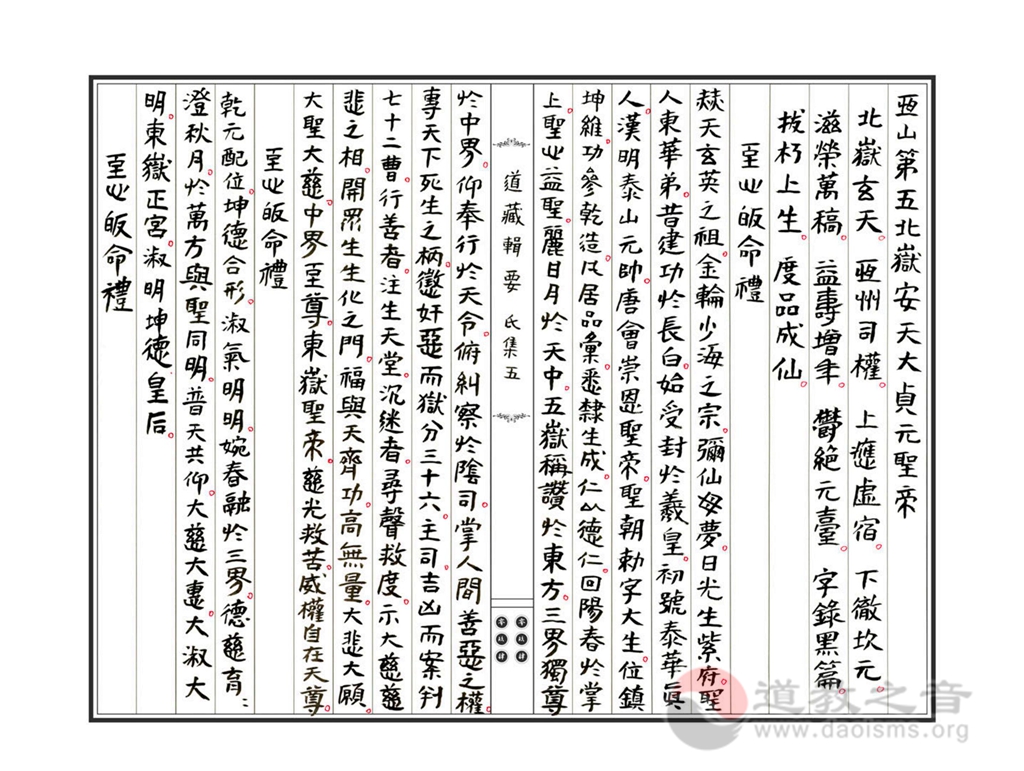 恆山第五北嶽安天大貞元聖帝
北嶽玄天。恆州司權。上應虛宿。下徹坎元。
滋榮萬稿。益壽增年。鬱絕元臺。字錄黑篇。
拔朽上生。度品成仙。
至心皈命禮
赫天玄英之祖。金輪少海之宗。彌仙母夢。日光生紫府。聖
人東華弟。昔建功於長白。始受封於羲皇。初號泰華眞
人。漢明泰山元帥。唐會崇恩聖帝。聖朝勅字大生。位鎮
坤維。功參乾造。凡居品彙。悉隸生成。仁以德仁。回陽春於掌
上。聖心益聖。麗日月於天中。五嶽稱讚於東方。三界獨尊
道藏輯要 氏集五
於中界。仰奉行於天令。俯糾察於陰司。掌人間善惡之權。
專天下死生之柄。懲奸惡而獄分三十六。主司吉凶而案判
七十二曹。行善者。注生天堂。沉迷者。尋聲救度。示大慈
悲之相。開眾生生化之門。福與天齊。功高無量。大悲大願。
大聖大慈。中界至尊。東嶽聖帝。慈光救苦。威權自在天尊。
至心皈命禮
乾元配位。坤德合形。淑氣明明。婉春融於三界。德慈育。
澄秋月。於萬方。與聖同明。普天共仰。大慈大惠。大淑大
明。東嶽正宮。淑明坤德皇后。
至心皈命禮
道教之音
www.daoisms.org